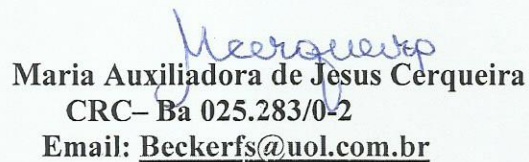 Mcerqueira
Maria Auxiliadora de Jesus Cerqueira
CRC– Ba 025.283/0-2
Email: Beckerfs@uol.com.br